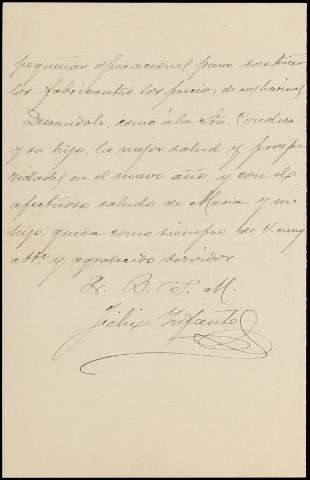 pequeñas operaciones para sostener
los fabricantes los precios de sus harinas
Deseandole, como á la Sra. Condesa
y su hijo, la mejor salud y prospe
ridades en el nuevo año y con el
afectuoso saludo de Maria y mi
hijo, queda como siempre de V. muy
atto. y agradecido servidor
Q. B. S. M.
Infante